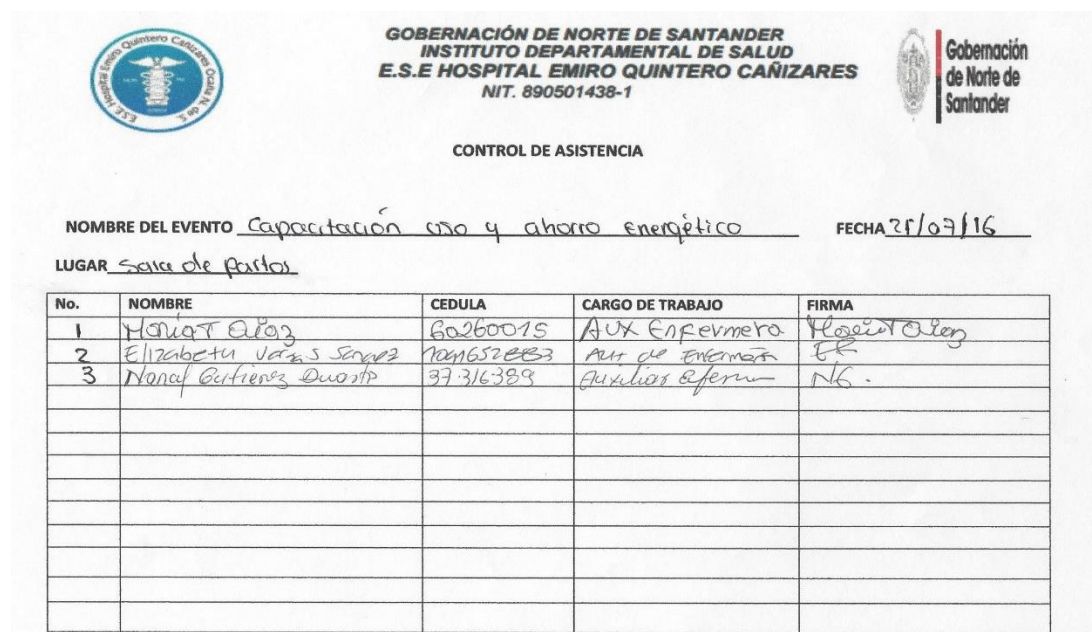 E.S.E Hospital Emiro Quintero Cañizares Ocaña N. de S.
GOBERNACIÓN DE NORTE DE SANTANDER
INSTITUTO DEPARTAMENTAL DE SALUD
E.S.E HOSPITAL EMIRO QUINTERO CAÑIZARES
NIT. 890501438-1
Gobernación
de Norte de
Santander
CONTROL DE ASISTENCIA
NOMBRE DEL EVENTO Capacitación uso y ahorro energético FECHA /07/16
LUGAR Sala de Partos
No. NOMBRE CEDULA CARGO DE TRABAJO FIRMA
1 Maria T Diaz 60260015 AUX Enfermera Maria T Diaz
2 Elizabeth Aux de
3 Gutierrez Duarte 37.316389 Auxiliar NG.